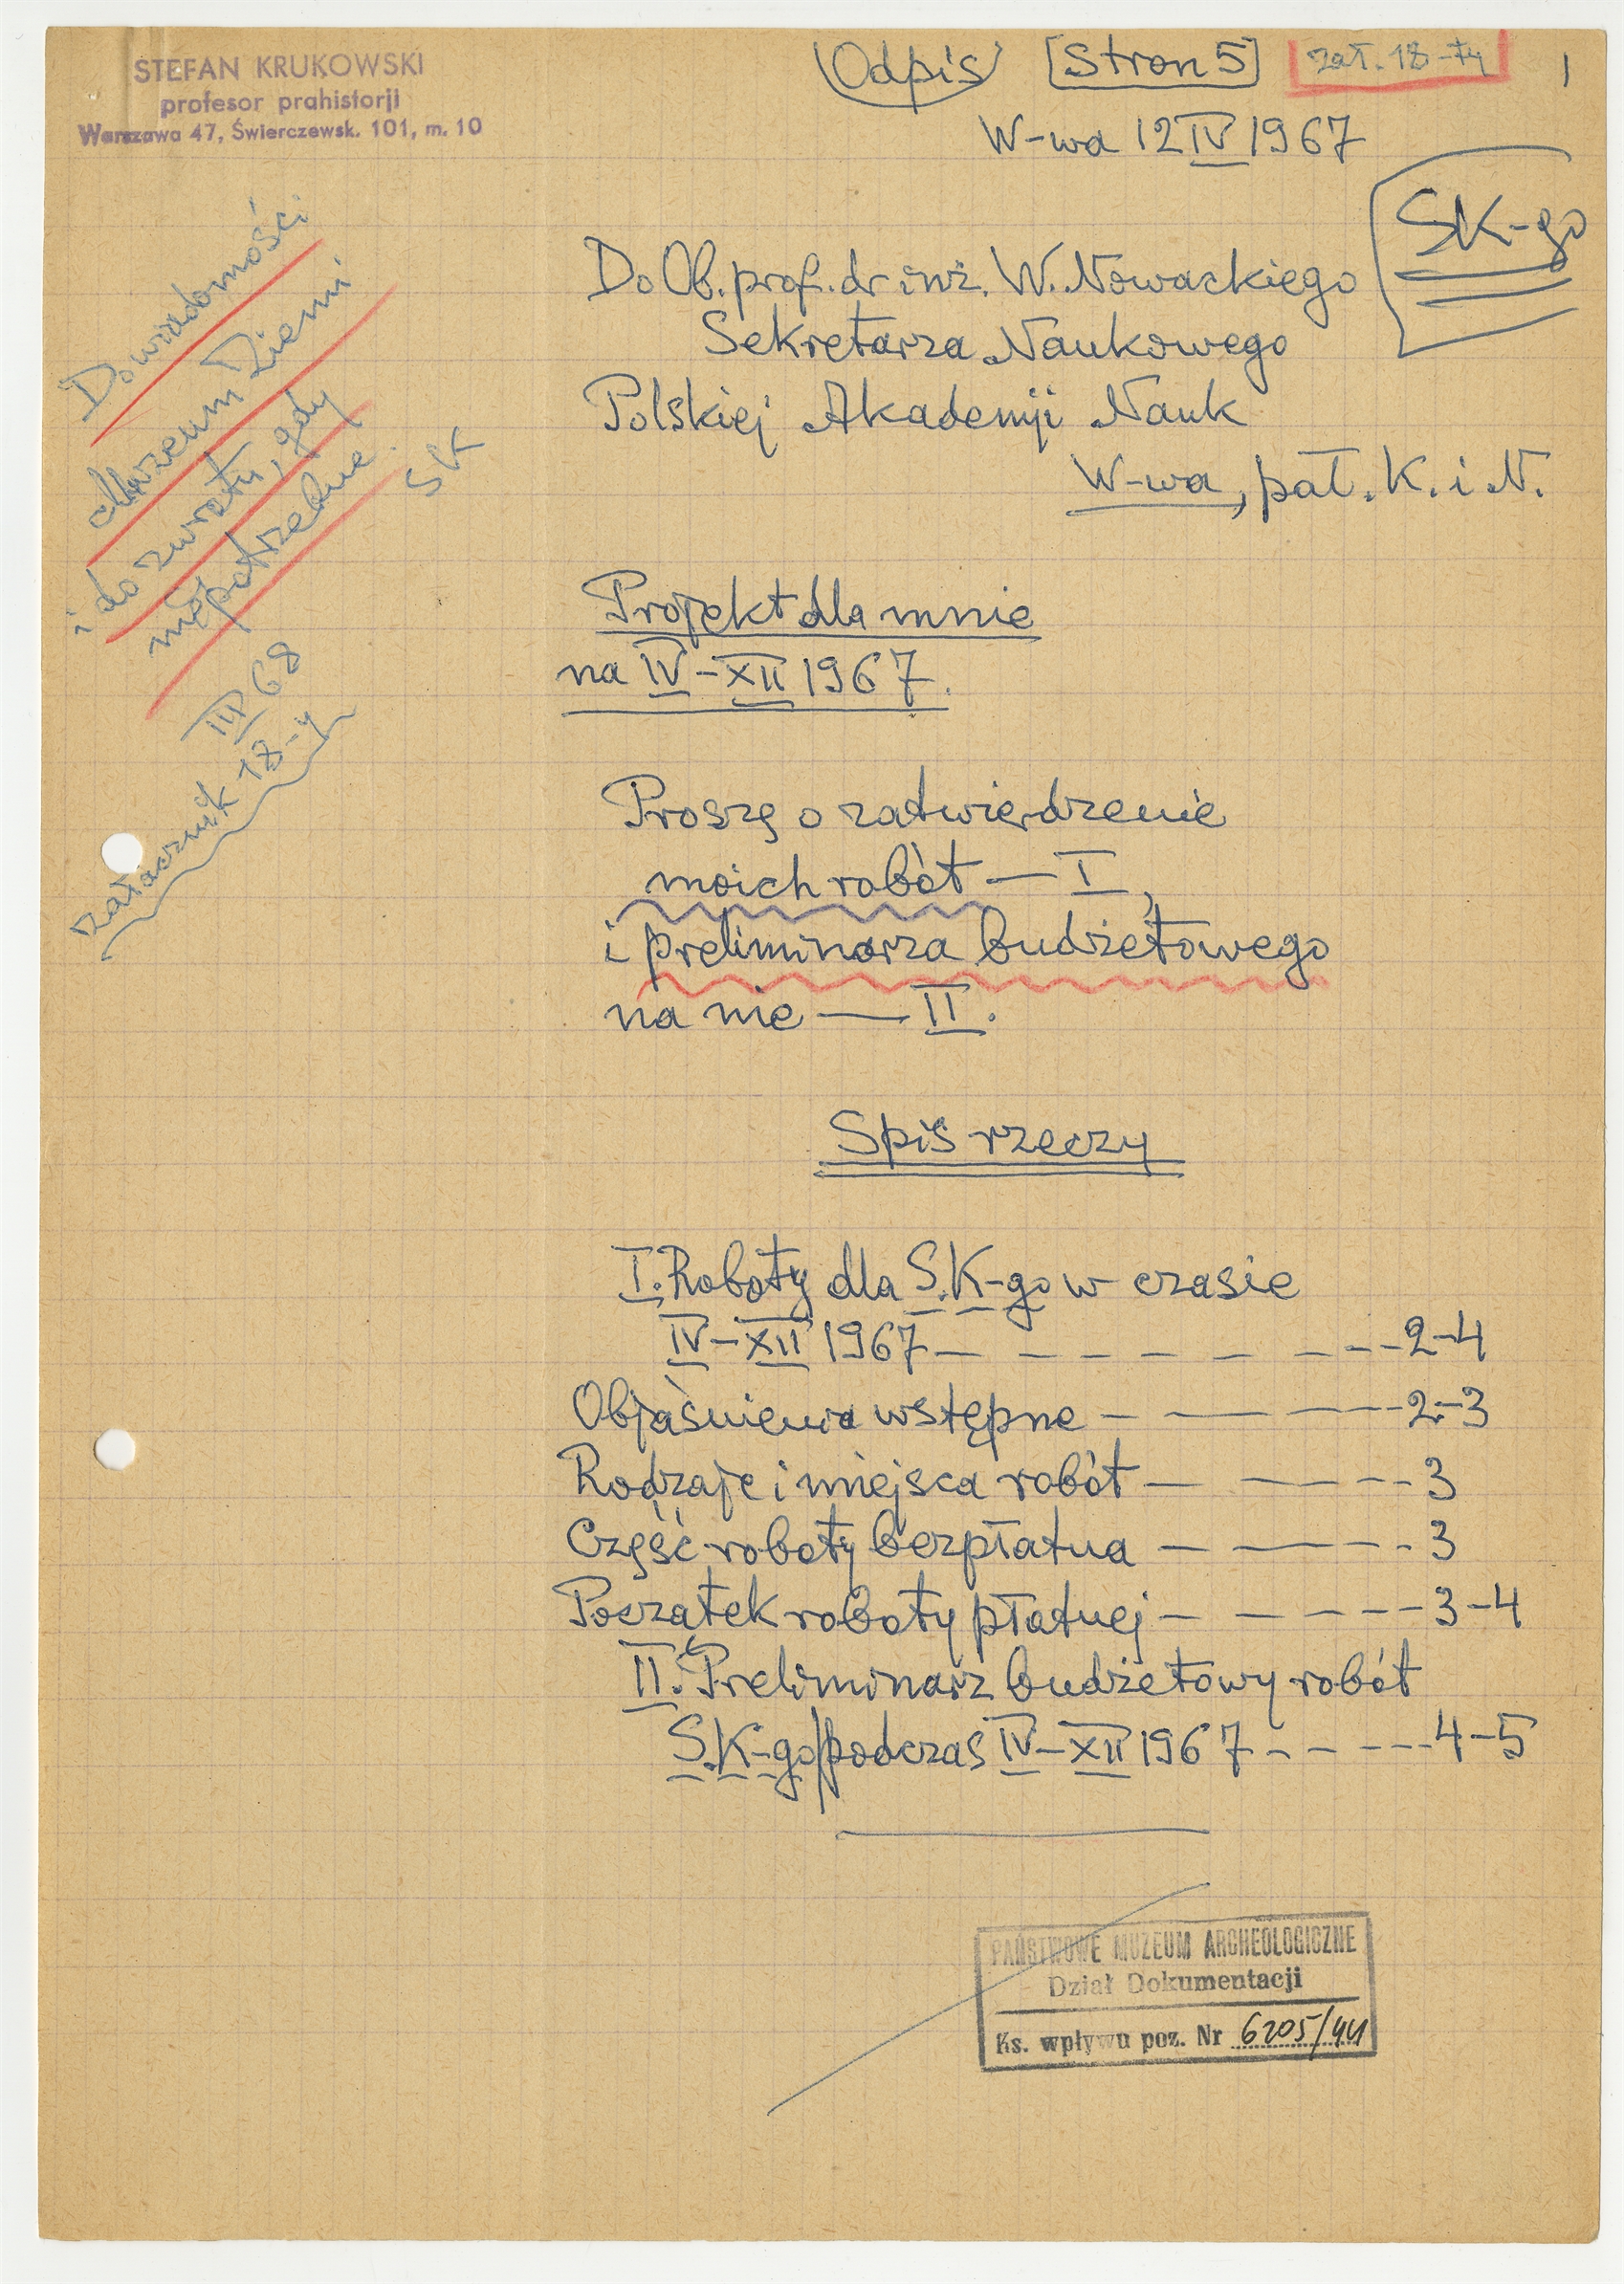 STEFAN KRUKOWSKI
profesor prahistorji
Warszawa 47, Świerczewsk. 101, m. 10
Odpis [Stron 5] zał. 18-ty 1
W-wa 12 IV 1967
SK-go
Do Ob. prof. dr inż. W. Nowackiego
Sekretarza Naukowego
Polskiej Akademji Nauk
W-wa, pał. K. i N.
Do wiadomości
Muzeum Ziemi
i do zwrotu, gdy
niepotrzebne
SK
III 68
załacznik 18-y
Projekt dla mnie
na IV-XII 1967.
Proszę o zatwierdzenie
moich robót — I,
i preliminarza budżetowego
na nie — II.
Spis rzeczy
I. Roboty dla S.K-go w czasie
IV-XII 1967 – – – – – – – – 2-4
Objaśnienia wstępne – — — – – – 2-3
Rodzaje i miejsca robót — — – – – 3
Część roboty bezpłatna — — – – - 3
Początek roboty płatnej – — – – – 3-4
II. Preliminarz budżetowy robót
S.K-go podczas IV-XII 1967 – – – – – 4-5
PAŃSTWOWE MUZEUM ARCHEOLOGICZNE
Dział Dokumentacji
Ks. wpływu poz. Nr 6205/44